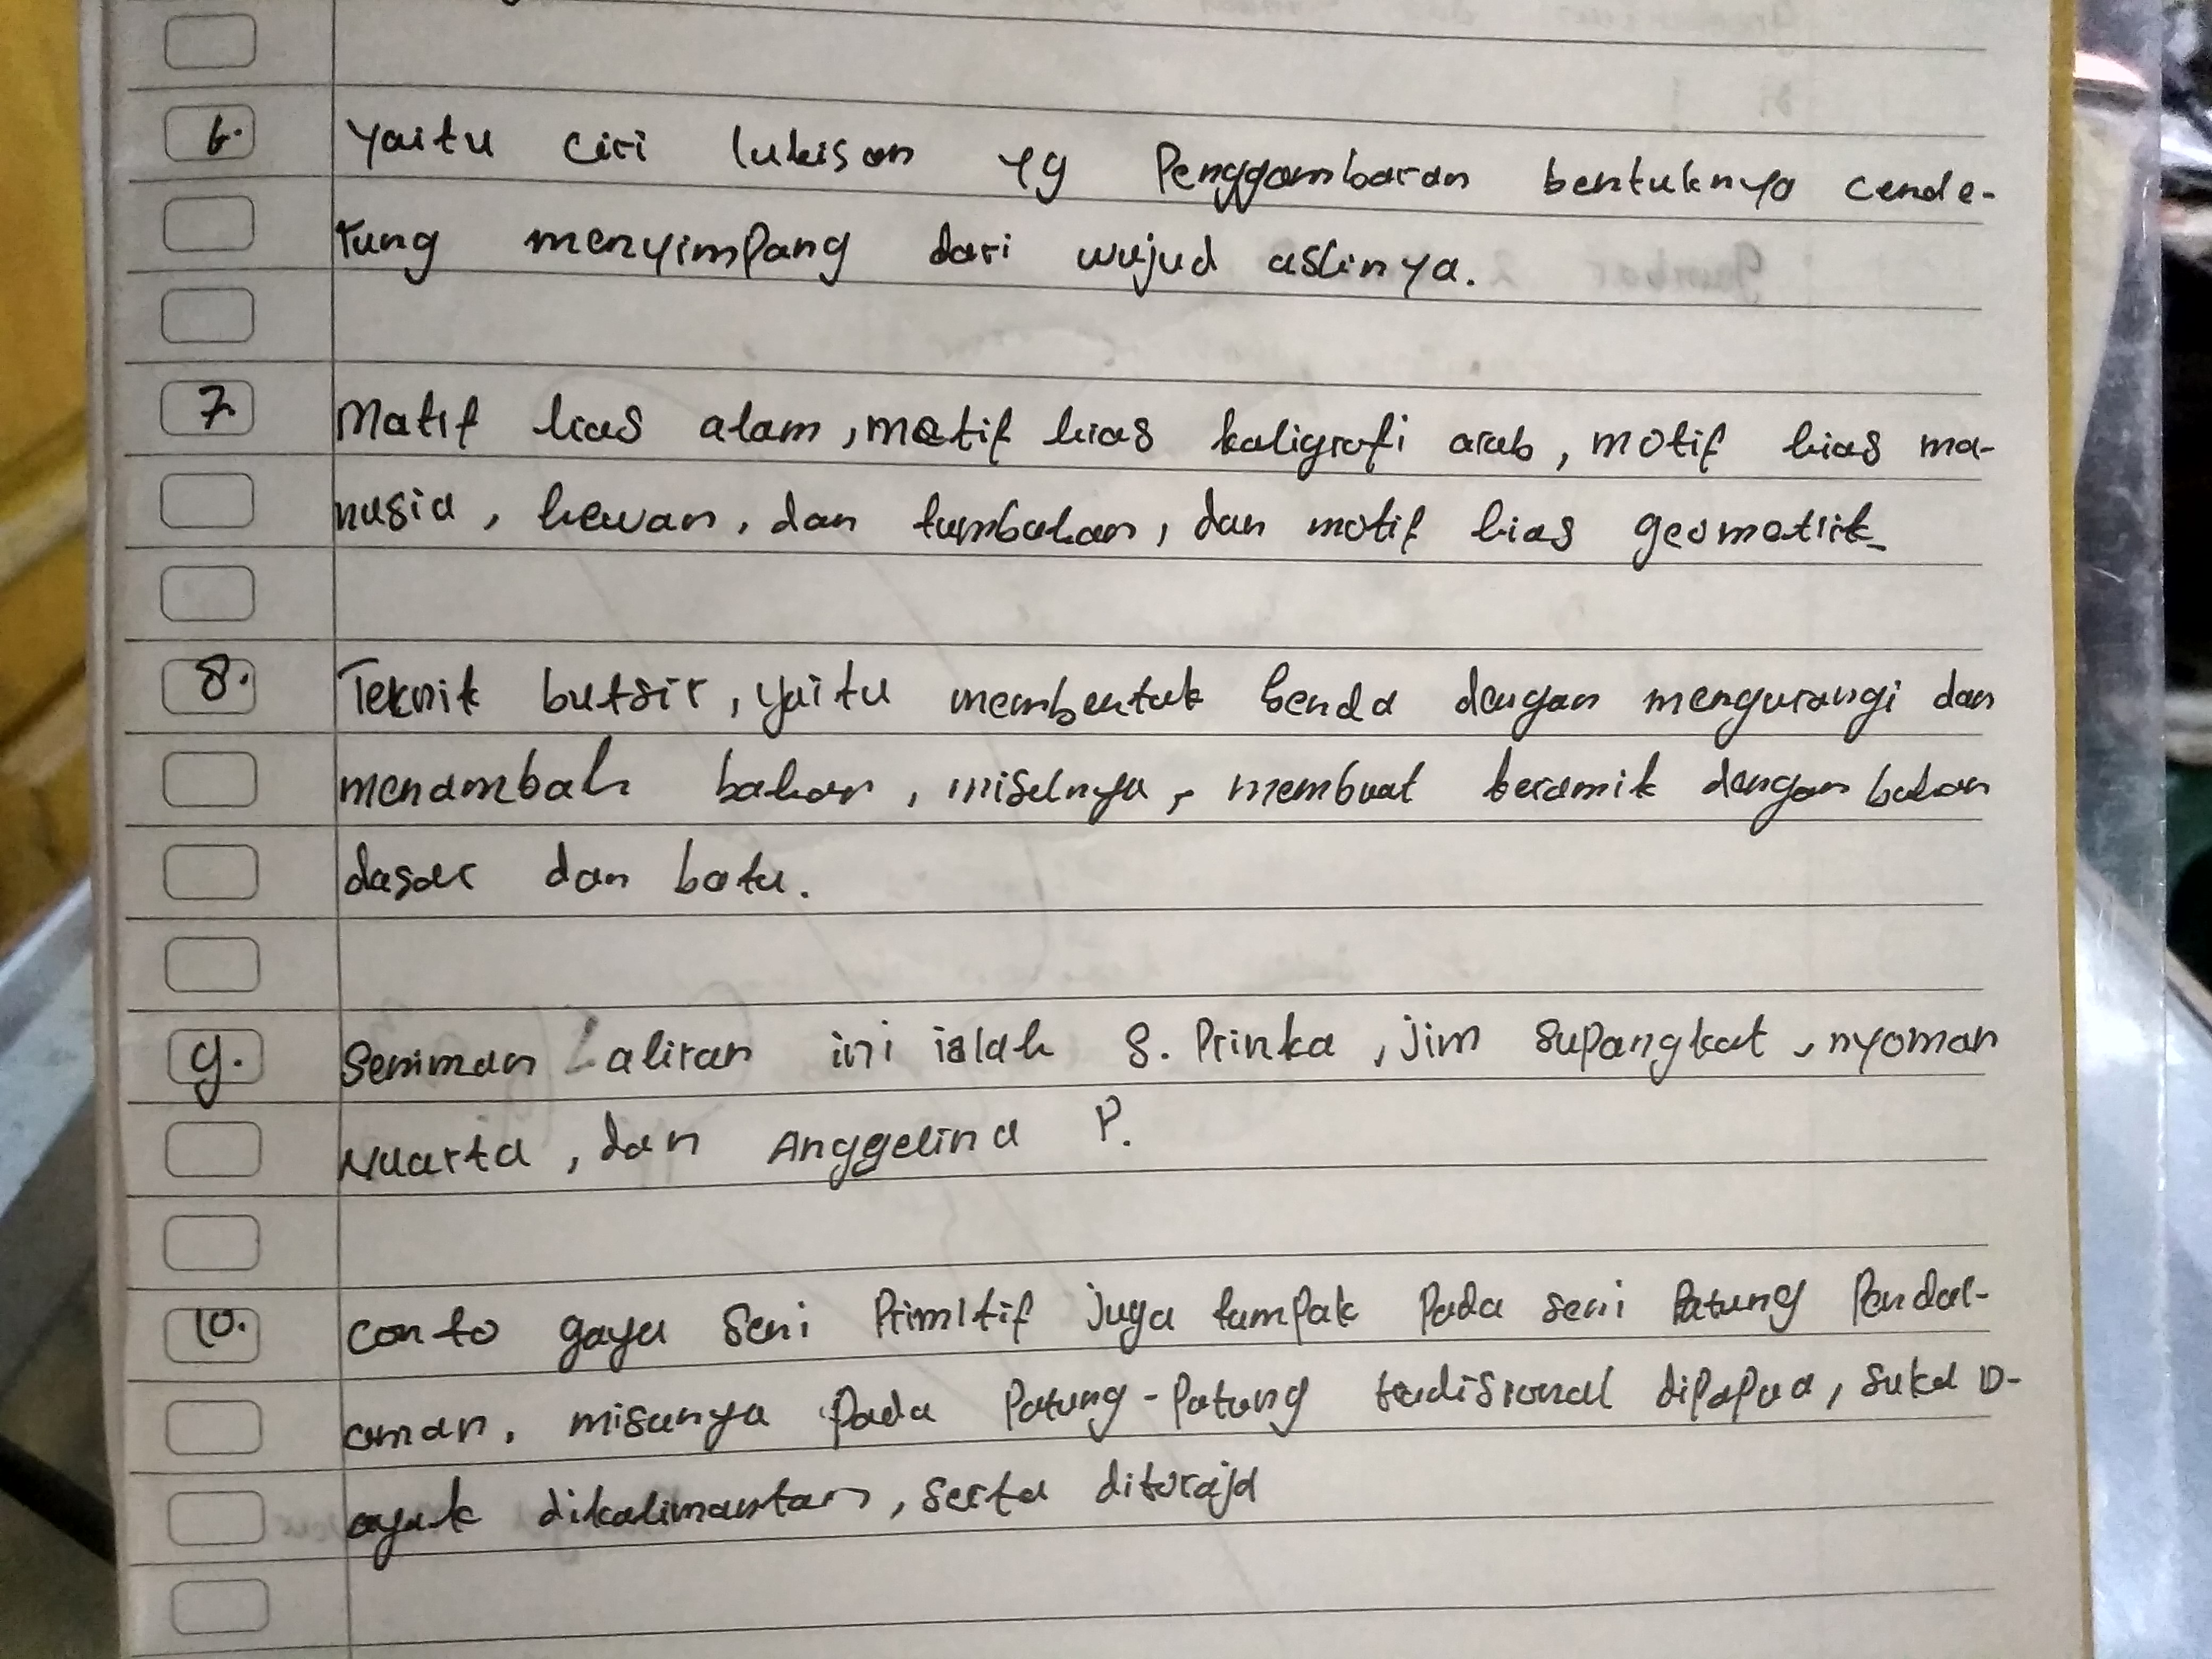 6. Yaitu ciri lukisan yg Penggambaran bentuknya cende-
rung menyimpang dari wujud aslinya.
7. Motif hias alam, motif hias kaligrafi arab, motif hias ma-
nusia, hewan, dan tumbuhan, dan motif hias geometrik
8. Teknik butsir, yaitu membentuk benda dengan mengurangi dan
menambah bahan, miselnya, membuat keramik dengan bahan
dasar dan batu.
9. Seniman aliran ini ialah S. Prinka, Jim Supangkat, nyoman
Nuarta, dan Anggelina P.
10. conto gaya seni Primitif juga tampak Pada seni Patung Pendal-
aman, misanya Pada Patung-Patung tradisional diPaPua, suku D-
ayak dikalimantan, serta ditoraja